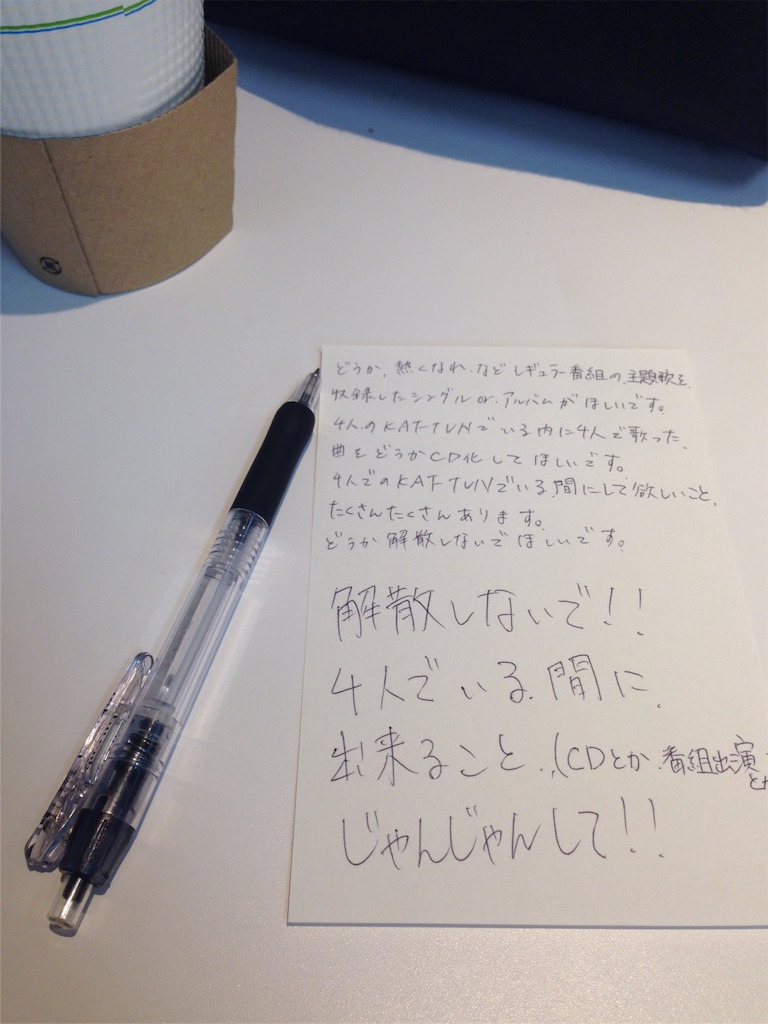 どうか、熱くなれ、などレギュラー番組の主題歌を
収録したシングル or アルバムがほしいです。
4人のKAT-TUNでいる内に4人で歌った
曲をどうかCD化してほしいです。
4人でのKAT-TUNでいる間にして欲しいこと、
たくさんたくさんあります。
どうか解散しないでほしいです。
解散しないで!!
4人でいる間に
出来ること、(CDとか番組出演
とか
じゃんじゃんして!!